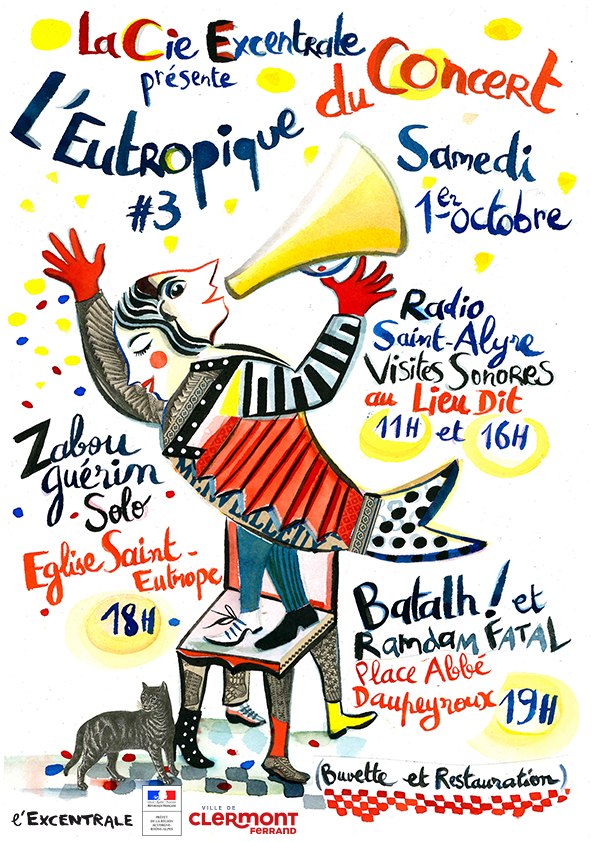 La Cie Excentrale
présente
L'Eutropique
#3
du Concert
Samedi
1er octobre
Radio
Saint-Alyre
Visites Sonores
au Lieu Dit
11H et 16H
Zabou
guérin
Solo
Eglise Saint-
Eutrope
18H
Batalh! et
Ramdam Fatal
Place Abbé
Daupeyroux 19H
(Buvette et Restauration)
l'Excentrale
PRÉFET
DE LA RÉGION
AUVERGNE
RHÔNE-ALPES
VILLE DE
CLERMONT
FERRAND